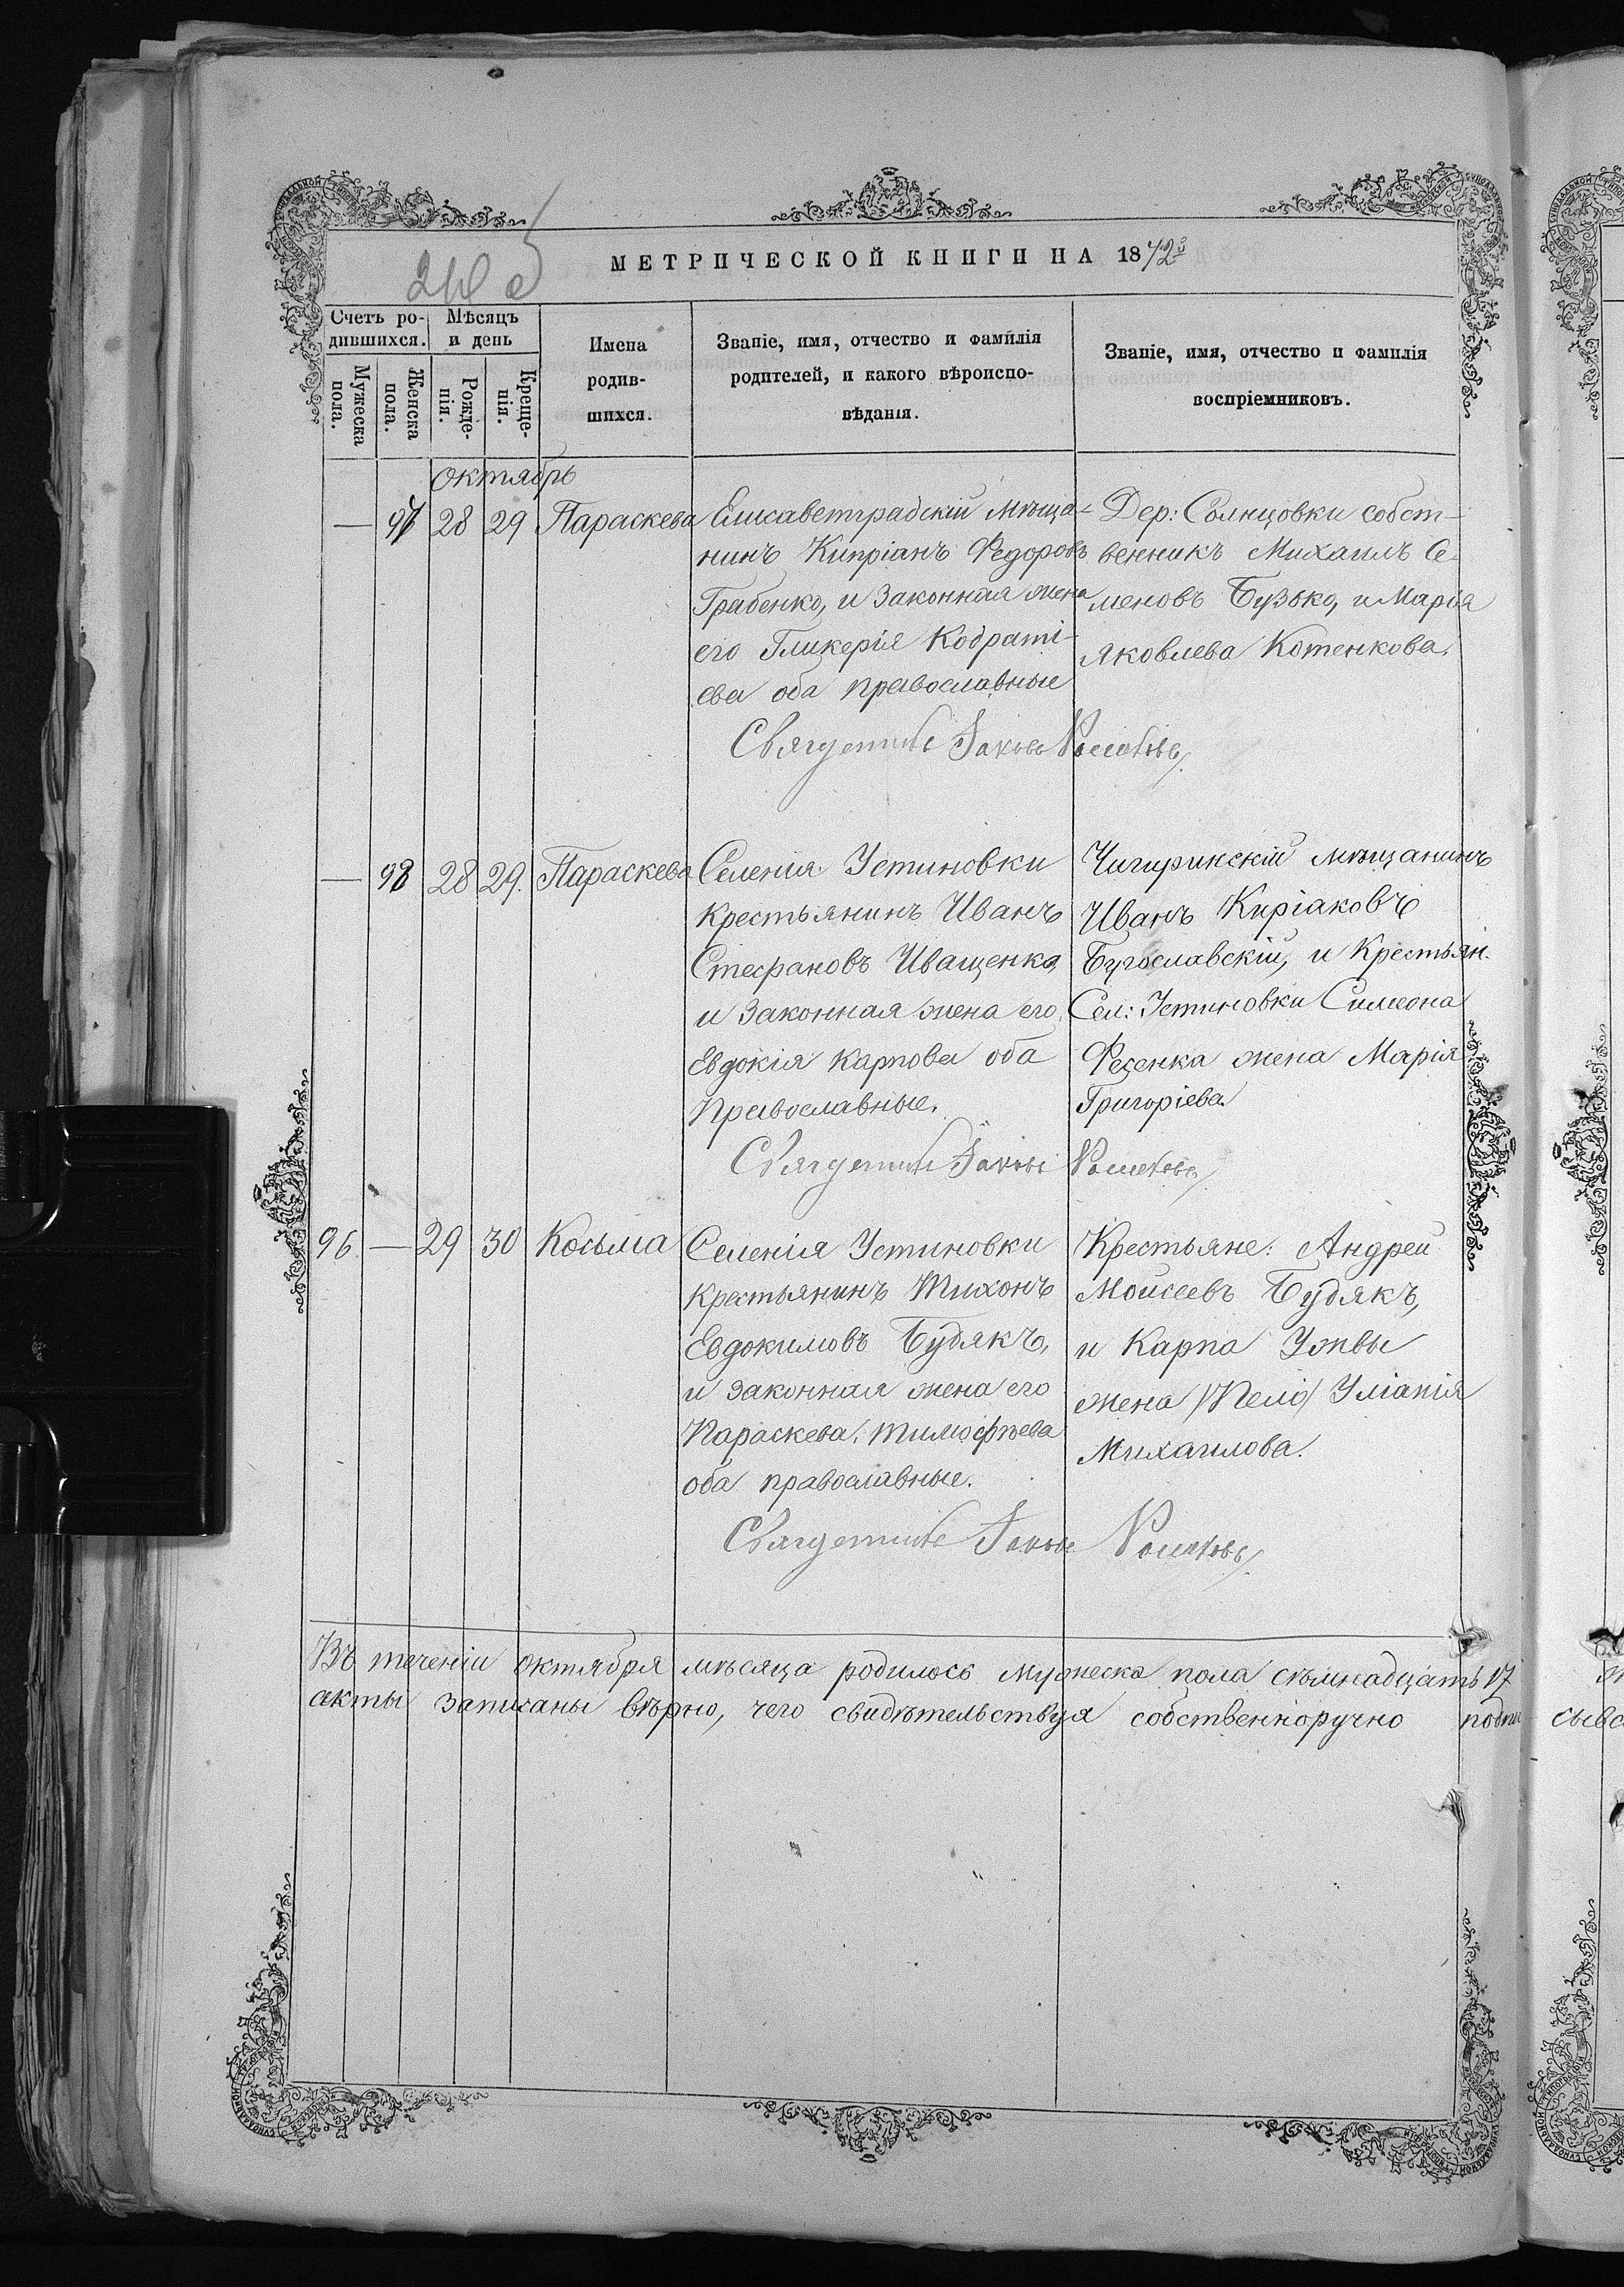 МЕТРИЧЕСКОЙ КНИГИ НА 1872й
Счетъ ро-
дившихся.
Мѣсяцъ
и день
Мужеска
пола.
Женска
пола.
Рожде-
нія.
Креще-
нія.
Имена
родив-
шихся.
Званіе, имя, отчество и фамилія
родителей, и какого вѣроиспо-
вѣданія.
Званіе, имя, отчество и фамилія
воспріемниковъ.
Октябрь
— 97 28 29 Параскева
Елисаветградскій мѣща-
нинъ Кипріанъ Федоровъ
Грабенко, и законная жена
его Гликерія Кодраті-
ева оба православные
Дер: Солнцовки собст-
венникъ Михаилъ Се-
меновъ Бузько, и Марія
Яковлева Котенкова.
— 98 28 29. Параскева
Селенія Устиновки
Крестьянинъ Иванъ
Стефановъ Иващенко,
и законная жена его
Евдокія Карпова оба
Православные.
Чигиринскій мѣщанинъ
Иванъ Киріаковъ
Бугославскій, и Крестьян.
Сел: Устиновки Симеона
Фесенка жена Марія
Григоріева.
96 — 29 30 Косьма
Селенія Устиновки
Крестьянинъ Тихонъ
Евдокимовъ Будякъ,
и законная жена его
Параскева Тимофѣева
оба православные.
Крестьяне: Андрей
Моисеевъ Будякъ,
и Карпа Ужвы
жена Уліанія
Михаилова.
Въ теченіи октября мѣсяца родилось мужеска пола сѣмнадцать 17
акты записаны вѣрно, чего свидѣтельствуя собственноручно подпи